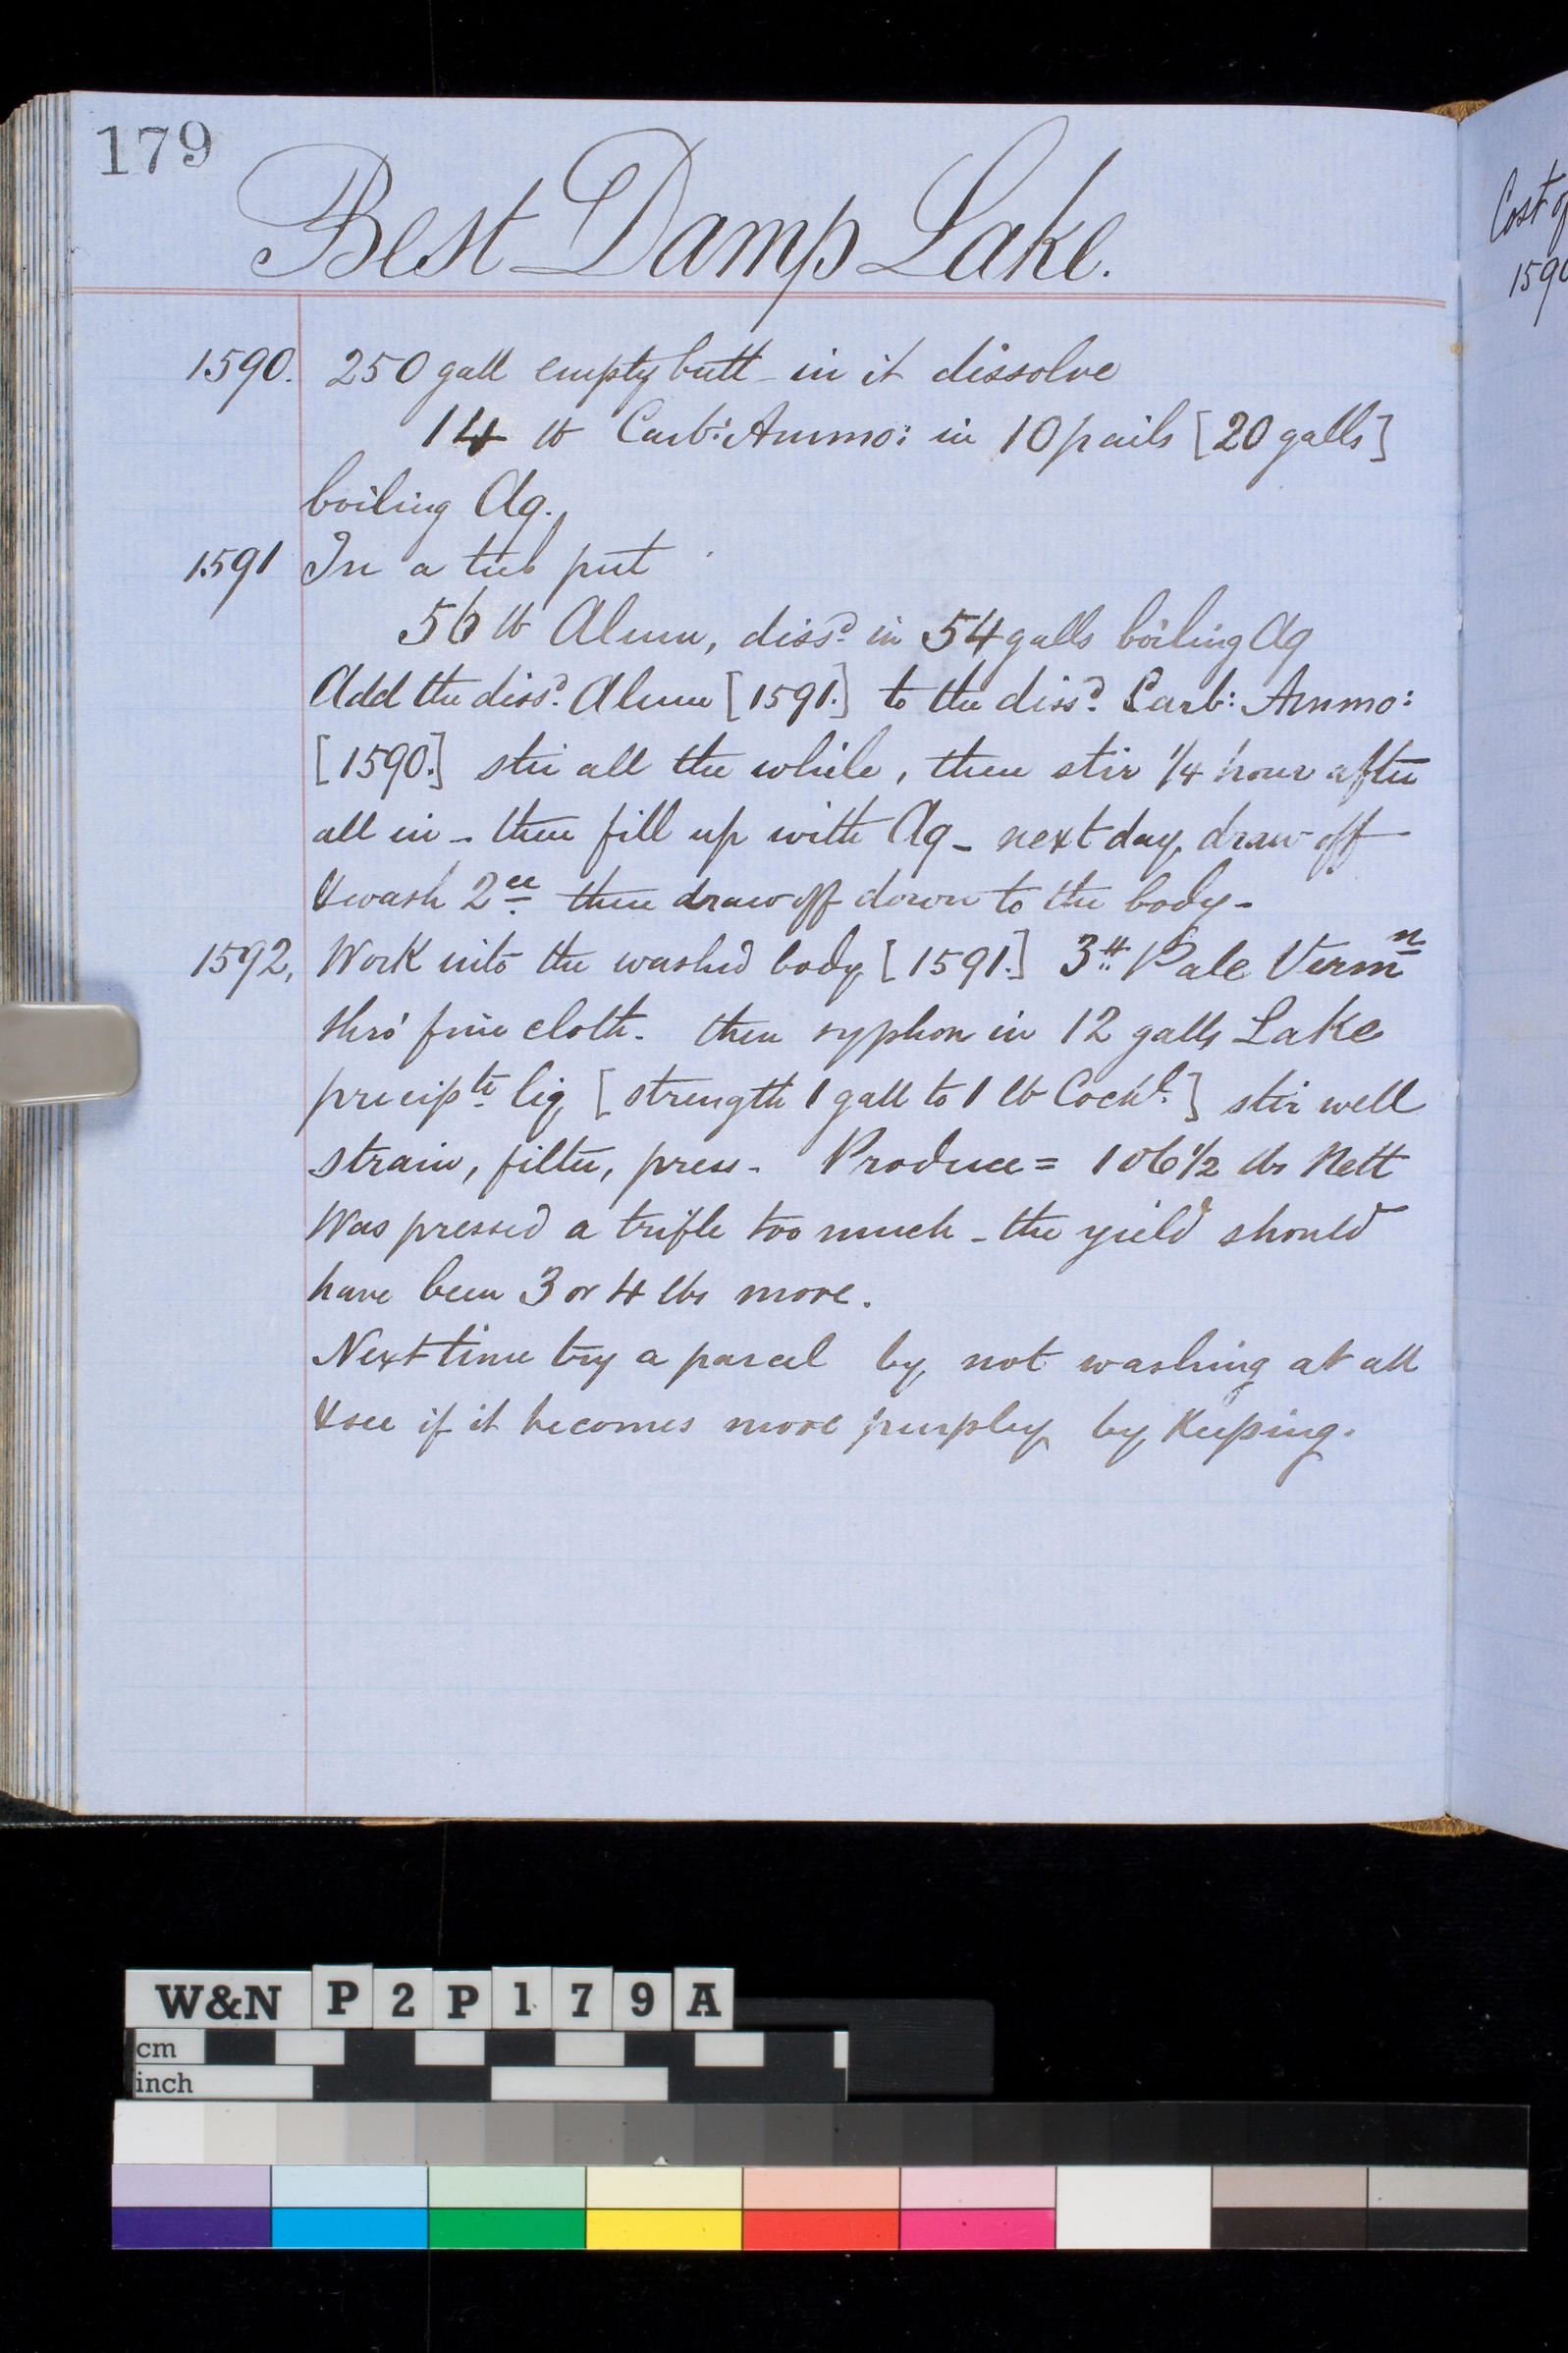 179
Best Damp Lake.
Cost of
1590. 250 gall empty butt - in it dissolve
14 lb Carb: Ammo: in 10 pails [20 galls]
boiling Aq.
1591 In a tub put
56 lb Alum, dissd. in 54 galls boiling Aq
Add the dissd. Alum [1591.] to the dissd. Carb: Ammo:
[1590.] stir all the while, then stir 1/4 hour after
all in - then fill up with Aq - next day, draw off
& wash 2ce then draw off down to the body -
1592, Work into the washed body [1591.] 3 Pale Vermn
thro' fine cloth. then syphon in 12 galls Lake
precipte. liq [strength 1 gall to 1 lb Cochl.] stir well
strain, filter, press - Produce = 106 1/2 lbs Nett
Was pressed a trifle too much - the yield should
have been 3 or 4 lbs more.
Next time try a parcel by not washing at all
& see if it becomes more purpley by Keeping.
W&N P2P179A
cm
inch